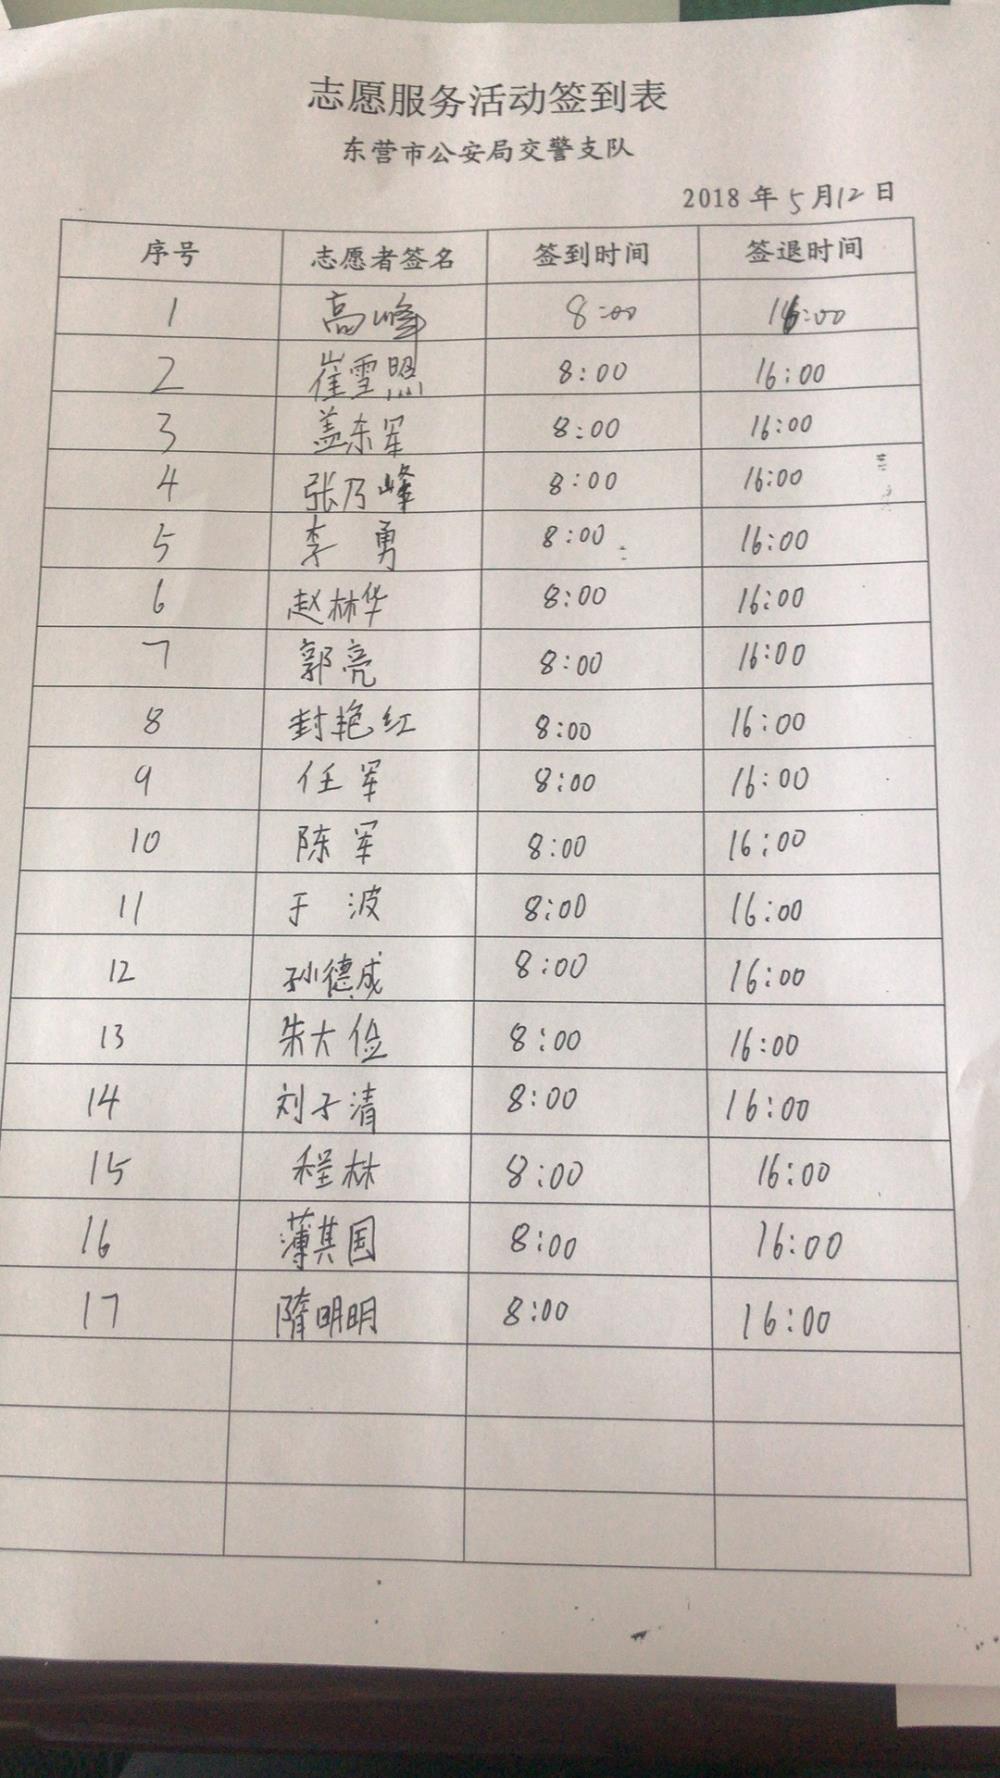 志愿服务活动签到表
东营市公安局交警支队
2018年5月12日
序号 志愿者签名 签到时间 签退时间
1 高峰 8:00 16:00
2 崔雪照 8:00 16:00
3 盖东军 8:00 16:00
4 张乃峰 8:00 16:00
5 李勇 8:00 16:00
6 赵林华 8:00 16:00
7 郭亮 8:00 16:00
8 封艳红 8:00 16:00
9 任军 8:00 16:00
10 陈军 8:00 16:00
11 于波 8:00 16:00
12 孙德成 8:00 16:00
13 朱大俭 8:00 16:00
14 刘子清 8:00 16:00
15 程林 8:00 16:00
16 薄其国 8:00 16:00
17 隋明明 8:00 16:00